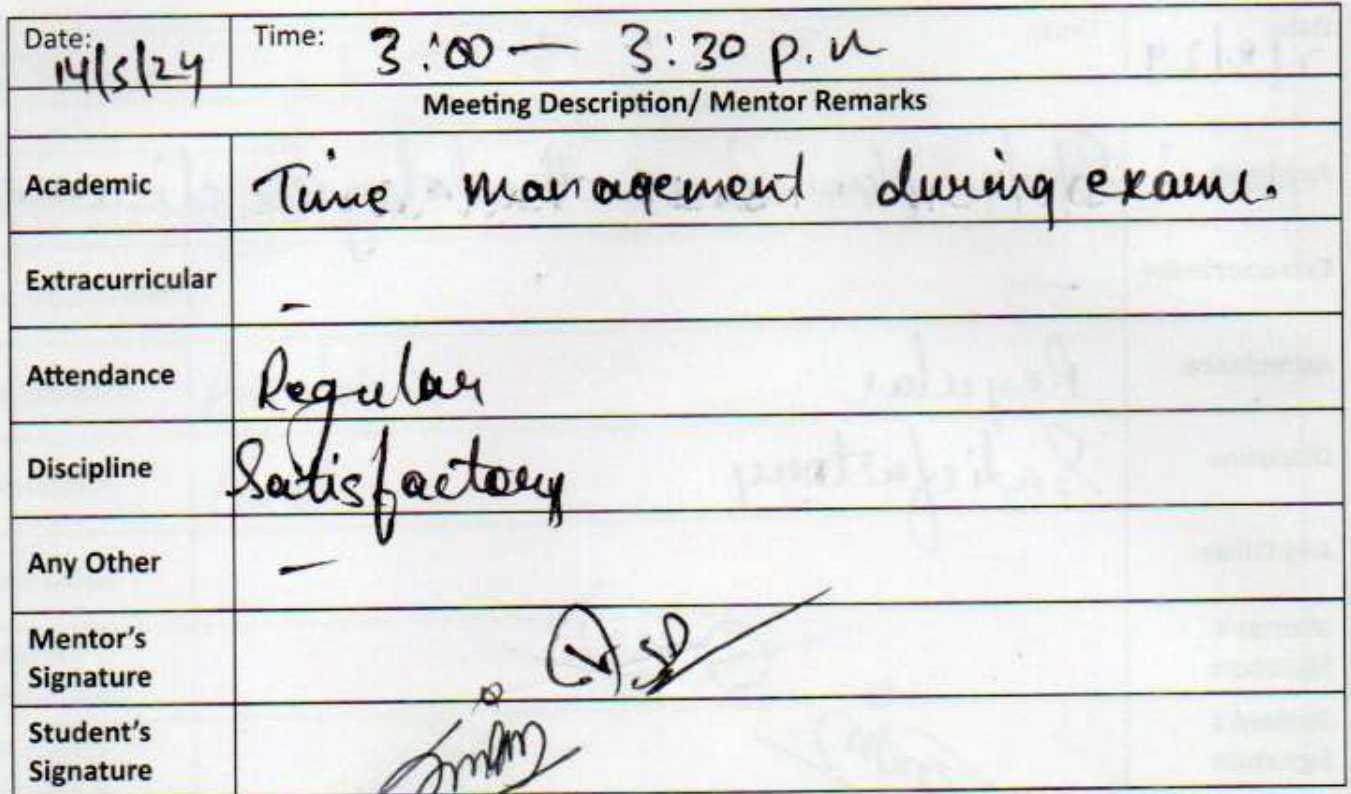 Date: 14/5/24 Time: 3:00 — 3:30 p.m
Meeting Description/ Mentor Remarks
Academic Time management during exams.
Extracurricular -
Attendance Regular
Discipline Satisfactory
Any Other —
Mentor's
Signature
Student's
Signature